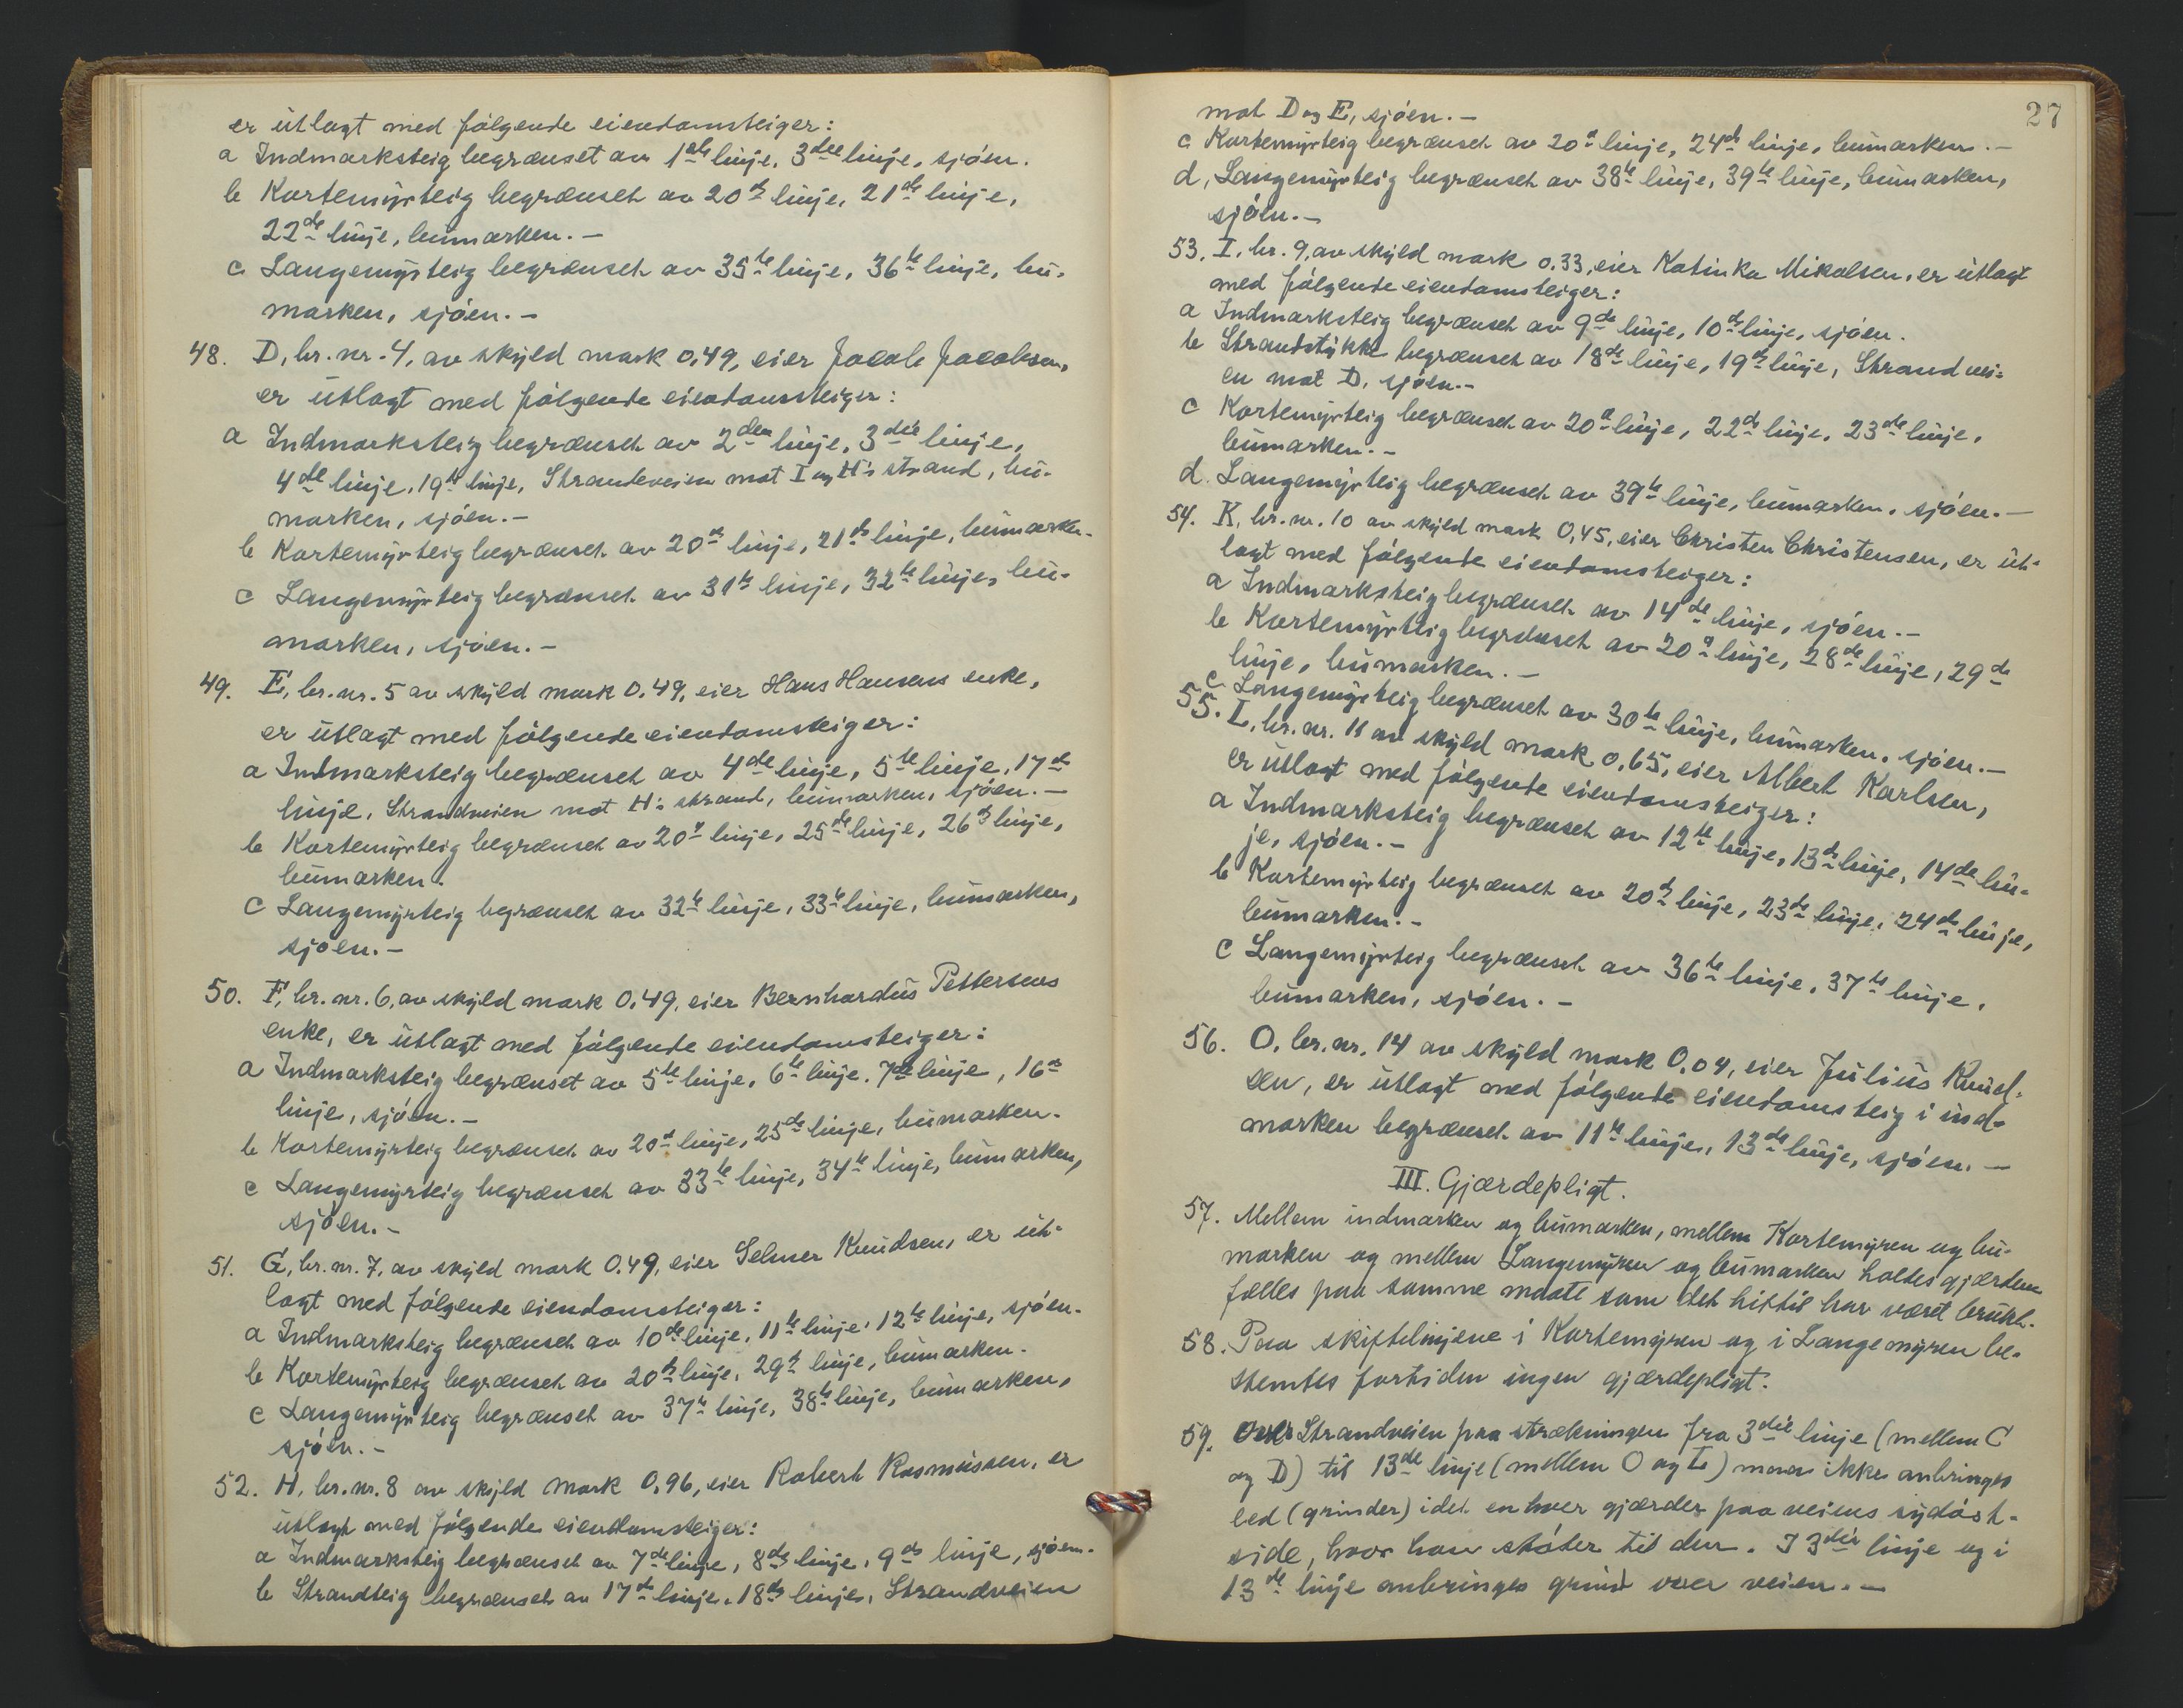 er utlagt med følgende eiendomsteiger:
a Indmarksteig begrænset av 1ste linje, 3die linje, sjøen.
b Kortemyrteig begrænset av 20de linje, 21de linje,
22de linje, bumarken. –
c Langemyrteig begrænset av 35te linje, 36te linje, bu-
marken, sjøen. –
48. D, br. nr. 4, av skyld mark 0,49, eier Jacob Jacobsen,
er utlagt med følgende eiendomsteiger:
a Indmarksteig begrænset av 2den linje, 3die linje,
4de linje, 19de linje, Strandveien mot I og H's strand, bu-
marken, sjøen. –
b Kortemyrteig begrænset av 20de linje, 21de linje, bumarken.
c Langemyrteig begrænset av 31te linje, 32te linje, bu-
marken, sjøen. –
49. E, br. nr. 5 av skyld mark 0,49, eier Hans Hansens enke,
er utlagt med følgende eiendomsteiger:
a Indmarksteig begrænset av 4de linje, 5te linje, 17de
linje, Strandveien mot H's strand, bumarken, sjøen. –
b Kortemyrteig begrænset av 20de linje, 25de linje, 26de linje,
bumarken.
c Langemyrteig begrænset av 32te linje, 33te linje, bumarken,
sjøen. –
50. F, br. nr. 6, av skyld mark 0,49, eier Bernhardus Pettersens
enke, er utlagt med følgende eiendomsteiger:
a Indmarksteig begrænset av 5te linje, 6te linje, 7de linje, 16de
linje, sjøen. –
b Kortemyrteig begrænset av 20de linje, 25de linje, bumarken.
c Langemyrteig begrænset av 33te linje, 34te linje, bumarken,
sjøen. –
51. G, br. nr. 7, av skyld mark 0,49, eier Selmer Knudsen, er ut-
lagt med følgende eiendomsteiger:
a Indmarksteig begrænset av 10de linje, 11te linje, 12te linje, sjøen.
b Kortemyrteig begrænset av 20de linje, 29de linje, bumarken.
c Langemyrteig begrænset av 37te linje, 38te linje, bumarken,
sjøen. –
52. H, br. nr. 8 av skyld mark 0,96, eier Robert Rasmussen, er
utlagt med følgende eiendomsteiger:
a Indmarksteig begrænset av 7de linje, 8de linje, 9de linje, sjøen.
b Strandteig begrænset av 17de linje, 18de linje, Strandveien
27
mot D og E, sjøen. –
c Kortemyrteig begrænset av 20de linje, 24de linje, bumarken. –
d, Langemyrteig begrænset av 38te linje, 39te linje, bumarken,
sjøen. –
53. I, br. 9, av skyld mark 0,33, eier Katinka Mikalsen, er utlagt
med følgende eiendomsteiger:
a Indmarksteig begrænset av 9de linje, 10de linje, sjøen.
b Strandstykke begrænset av 18de linje, 19de linje, Strandvei-
en mot D, sjøen. –
c Kortemyrteig begrænset av 20de linje, 22de linje, 23de linje,
bumarken. –
d. Langemyrteig begrænset av 39te linje, bumarken, sjøen. –
54. K, br. nr. 10 av skyld mark 0,45, eier Christen Christensen, er ut-
lagt med følgende eiendomsteiger:
a Indmarksteig begrænset av 14de linje, sjøen. –
b Kortemyrteig begrænset av 20de linje, 28de linje, 29de
linje, bumarken. –
c. Langemyrteig begrænset av 30te linje, bumarken, sjøen. –
55. L, br. nr. 11 av skyld mark 0,65, eier Albert Karlsen,
er utlagt med følgende eiendomsteiger:
a Indmarksteig begrænset av 12te linje, 13de linje, 14de lin-
je, sjøen. –
b Kortemyrteig begrænset av 20de linje, 23de linje, 24de linje,
bumarken. –
c Langemyrteig begrænset av 36te linje, 37te linje,
bumarken, sjøen. –
56. O, br. nr. 14 av skyld mark 0,04, eier Julius Knud-
sen, er utlagt med følgende eiendomsteig i ind-
marken begrænset av 11te linje, 13de linje, sjøen. –
III. Gjærdepligt.
57. Mellem indmarken og bumarken, mellem Kortemyren og bu-
marken og mellem Langemyren og bumarken holdes gjærdene
fælles paa samme maate som det hittil har været brukt.
58. Paa skiftelinjene i Kortemyren og i Langemyren be-
stemtes fortiden ingen gjærdepligt.
59. Over Strandveien paa strækningen fra 3die linje (mellem C
og D) til 13de linje (mellem O og L) maa ikke anbringes
led (grinder) idet enhver gjærder paa veiens sydøst-
side, hvor han støter til den. I 3die linje og i
13de linje anbringes grind over veien. –